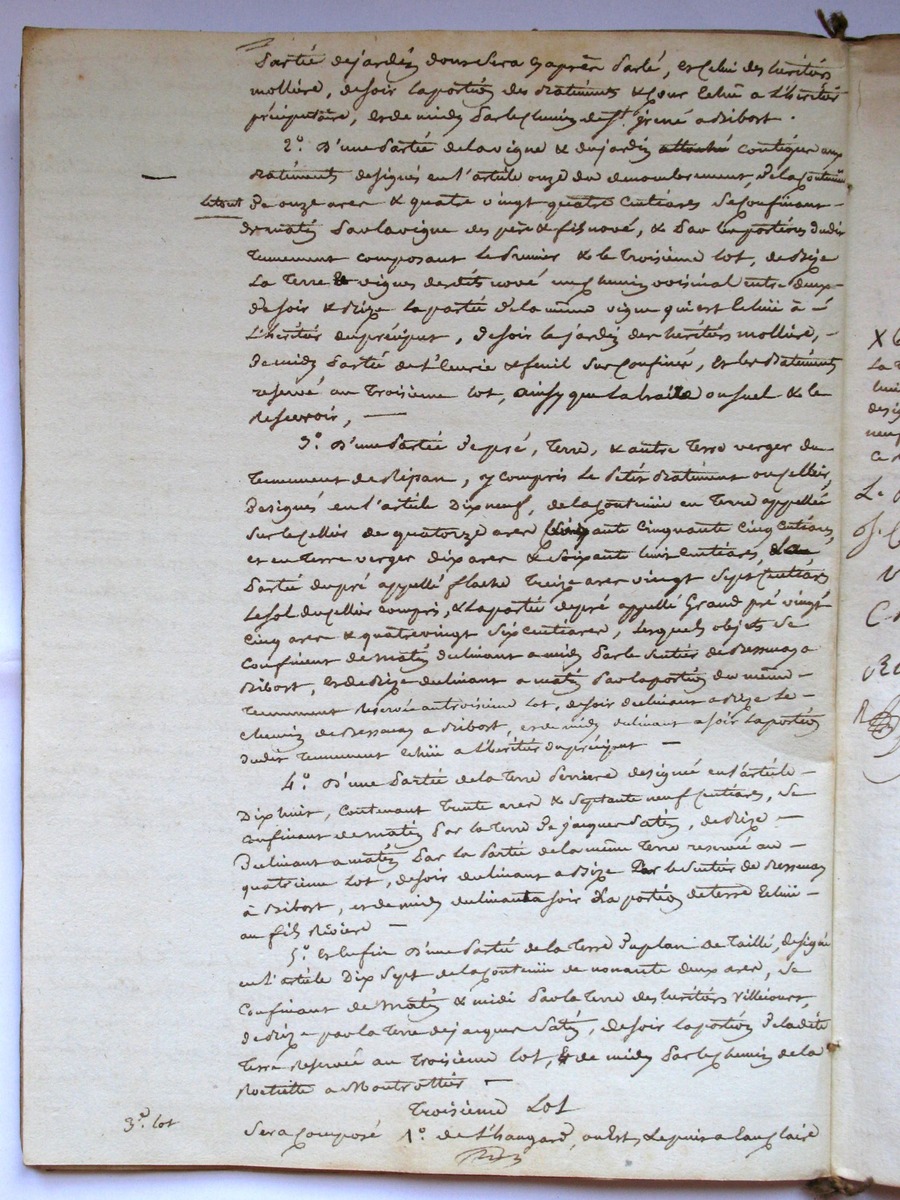 partie de jardin dont sera cy après parlé, et celui des héritiers
mollière, de soir la portion des Batiments & cour échüe a L'héritier
préciputaire, et de midy par le chemin de St. irené a Ribost.
2°. D'une partie de la vigne & du jardin contigue aux
Batiments designés en l'article onze du denombrement, de la contenüe
letout De onze ares & quatre vingt quatre Centiares se confinant
de matin par la vigne des père & fils nové, & par les portions dudit
Tenement composant le premier & le Troisième lot, de Bize
La Terre & vignes desdits nové un chemin voisinal entre deux
de soir & Bize la partie de la même vigne qui est échüe à
L'héritier du préciput, de soir le jardin des héritiers mollière,
De midy partie de l'Ecurie & fenil sus confiné, et les Batiments
reservé au Troisième lot, ainsy que la
Reservoir,
3°. D'une partie de pré, Terre, & autre Terre verger du
Tenement de Repan, y compris Le petit Batiment ou cellier,
Designés en l'article Dix neuf, de la contenüe en Terre appellée
Sur le cellier de quatorze ares Cinquante Cinq Centiares,
et en Terre verger dix ares & soixante huit Centiares,
partie du pré appellé flache Treize ares vingt sept Centiares
Le sol du cellier compris, & la partie de pré appellé Grand pré vingt
Cinq ares & quatrevingt six centiares, Lesquels objets se
Confinent de Matin declinant a midy par le sentier de Bessenay a
Ribost, et de Bize declinant a matin par la portion du même
Tenement reservée au troisieme lot, de soir declinant a Bize Le
chemin de Bessenay a Ribost, et de midy declinant a soir La portion
dudit Tenement échüe a L'héritier du préciput
4°. D'une partie de la Terre perriere designé en l'article
Dix huit, contenant Trente ares & septante neuf Centiares, se
confinant de matin par la Terre de jacques Satin, de Bize
Declinant a matin par La partie de la même Terre reservée au
quatrieme lot, de soir declinant a Bize par le sentier de Bessenay
à Ribost, et de midy declinant a soir La portion de terre Echüe
au fils Riviere
5°. Et Enfin D'une partie de la Terre Du plan de Taille, designé
en l'article Dix sept de la contenüe de nonante deux ares, se
Confinant de Matin & midi par la Terre des heritiers Villecourt,
de Bize par la Terre de jacques Satin, de soir la portion De ladite
Terre Reservée au Troisième lot, & de midy par le chemin de la
Rochette a Montrottier
Troisieme Lot
3e. lot Sera Composé 1°. de l'hangard, ou est Le puis a Eau Claire